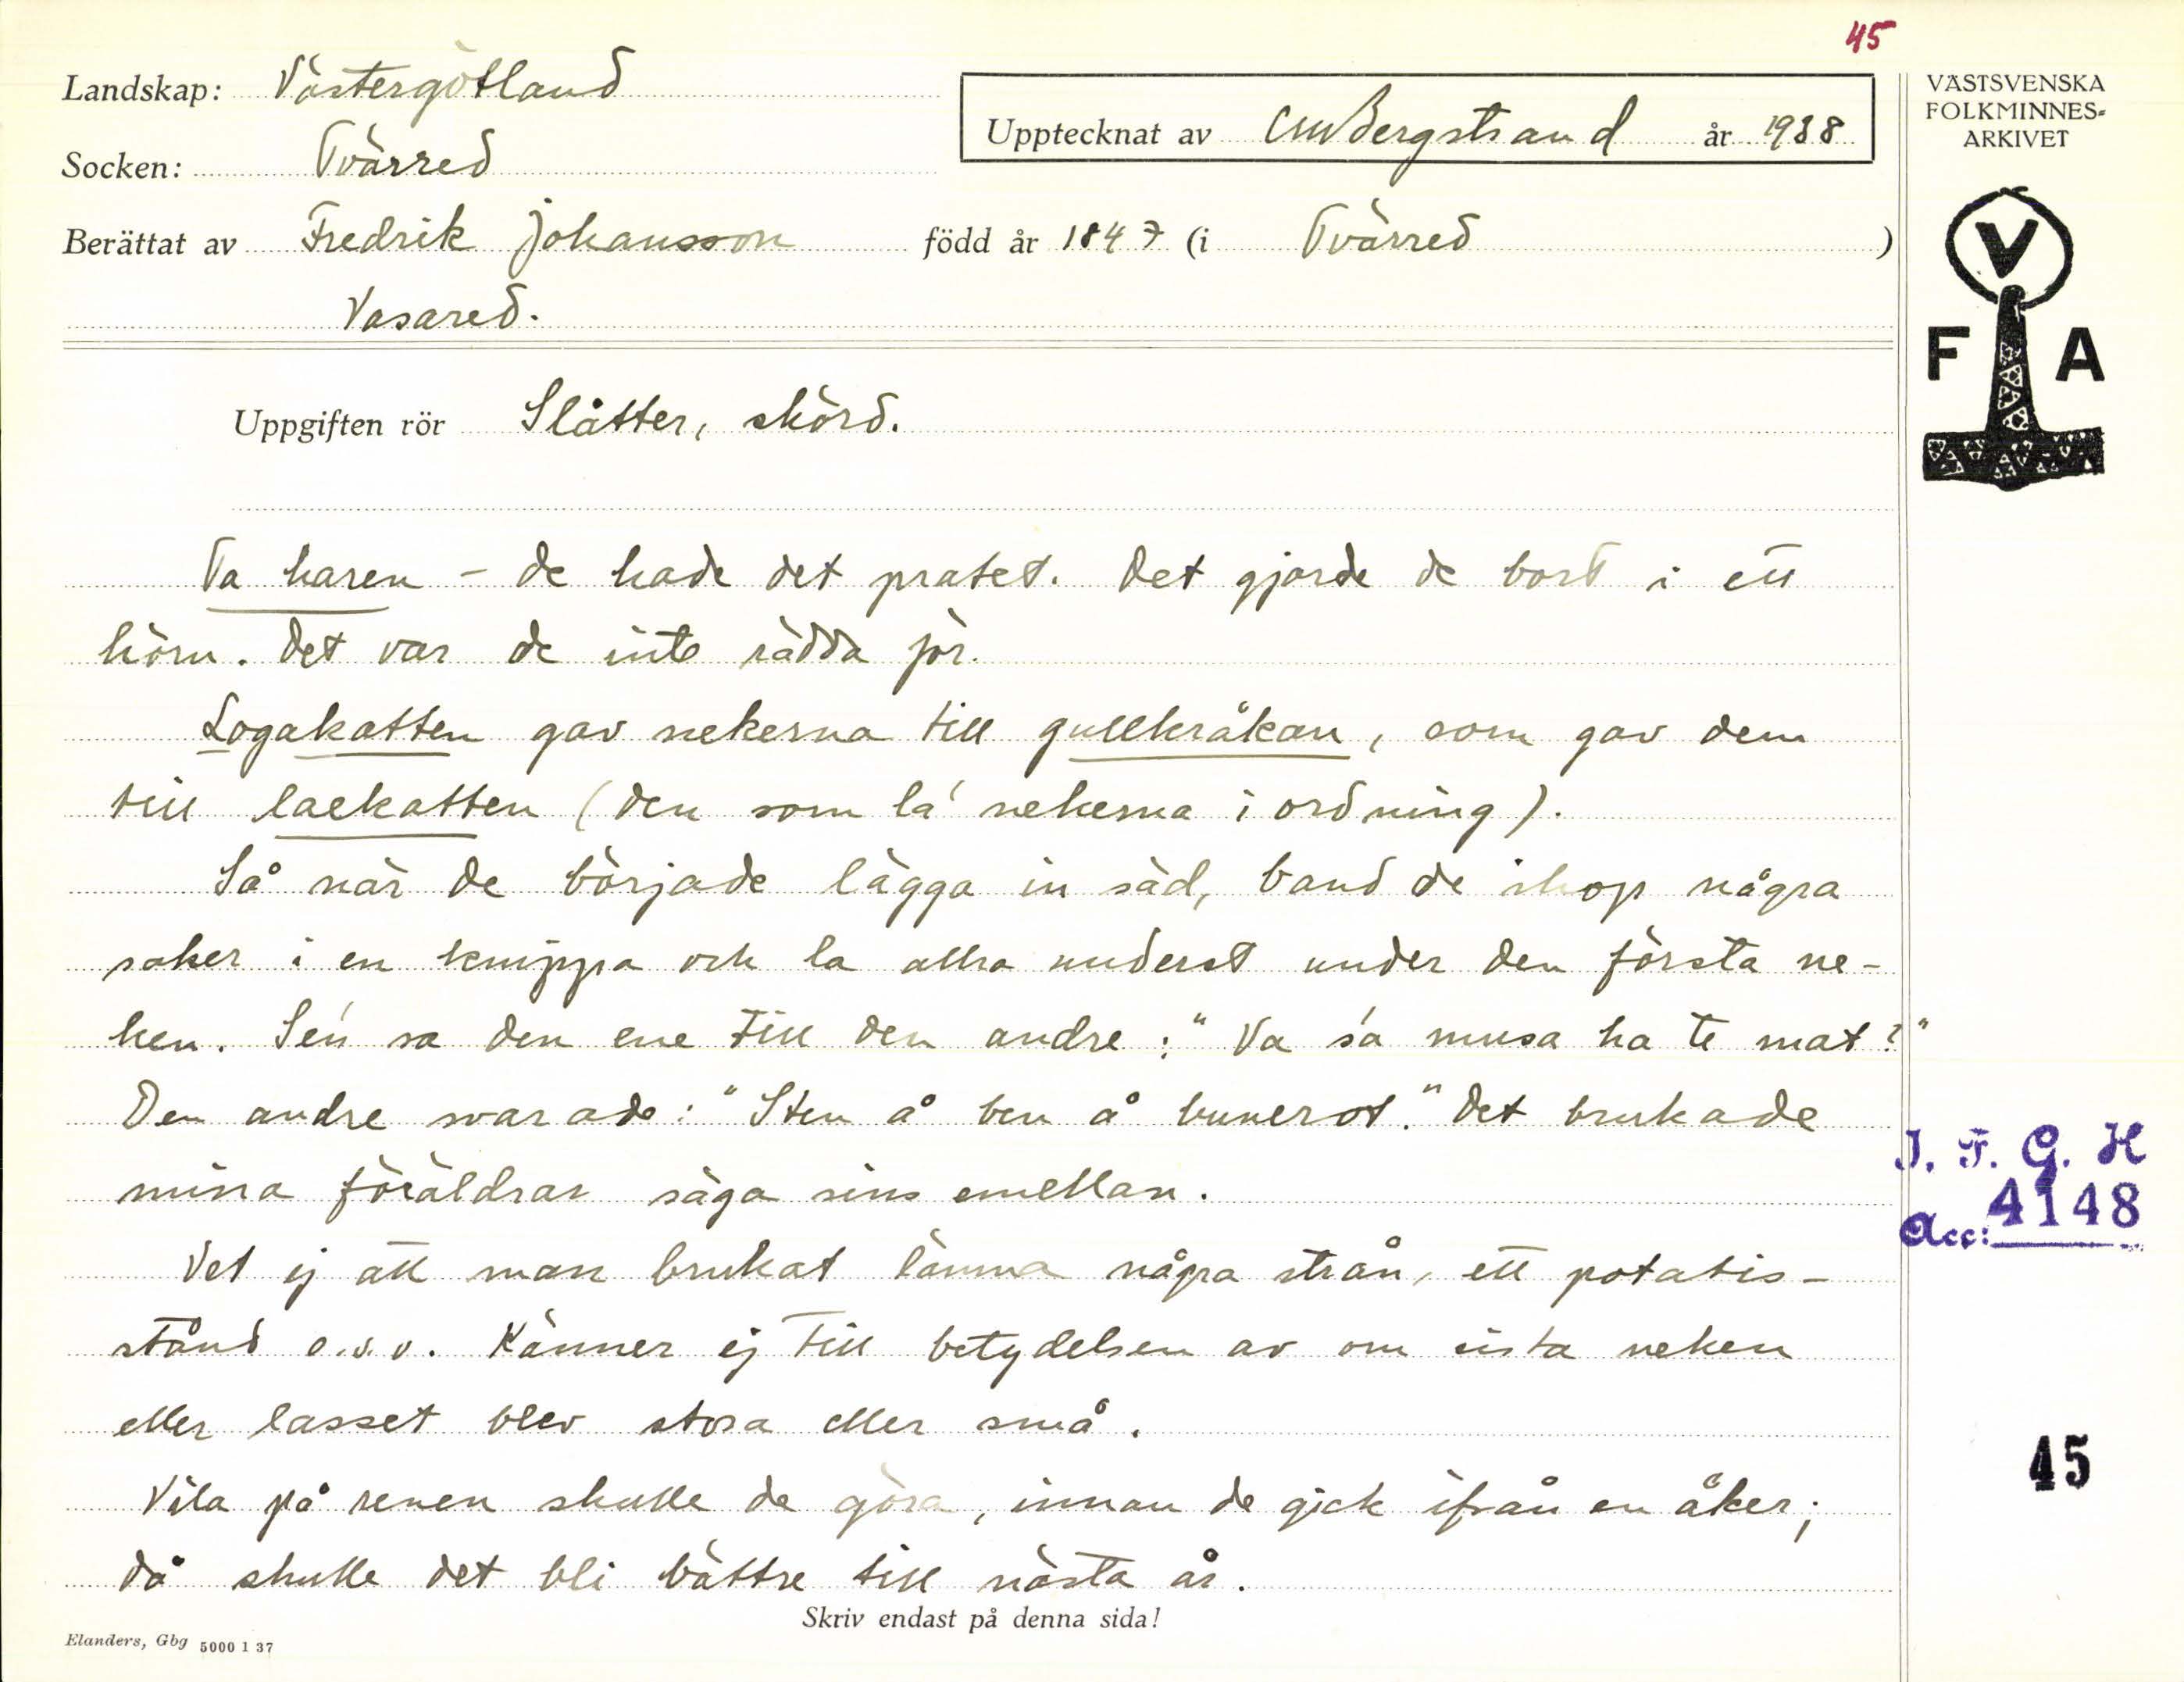 45
Landskap: Västergötland
Upptecknat av CMBergstrand år 1938
VÄSTSVENSKA
FOLKMINNES=
ARKIVET
Socken: Tvärred
Berättat av Fredrik Johansson född år 1847 (i Tvärred )
Vasared.
V
F A
Uppgiften rör Slåtter, skörd.
Ta haren - de hade det pratet. Det gjorde de bort i ett
hörn. Det var de inte rädda för.
Logakatten gav nekerna till gullkråkan, som gav dem
till laekatten (den som la' nekerna i ordning).
Så när de började lägga in säd, band de ihop några
saker i en knippa och la allra underst under den första ne-
ken. Sen sa den ene till den andre: "Va sa musa ha te mat?"
Den andre svarade: "Sten å ben å bunerot." Det brukade
mina föräldrar säga sins emellan.
J. F. G. H
Acc: 4148
Vet ej att man brukat lämna några strån, ett potatis-
stånd o.s.v. Känner ej till betydelsen av om sista neken
eller lasset blev stora eller små.
Vila på renen skulle de göra, innan de gick ifrån en åker;
då skulle det bli bättre till nästa år.
45
Skriv endast på denna sida!
Elanders, Gbg 5000 1 37